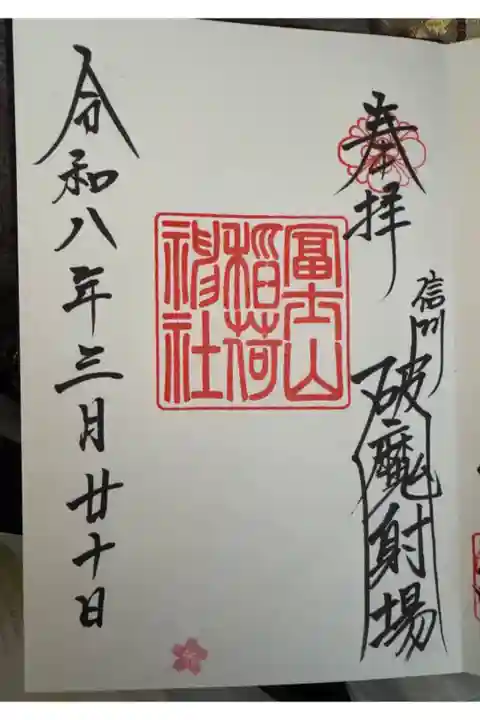 奉拝
信州
破魔射場
冨士山
稲荷
神社
令和八年三月廿十日